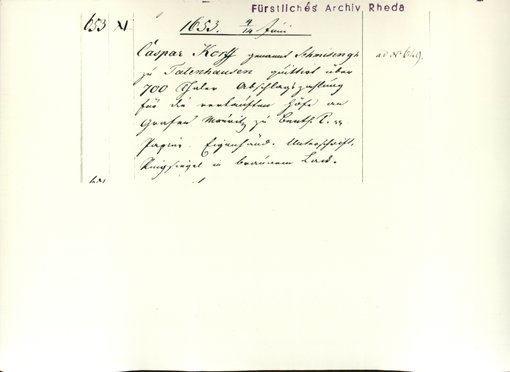 Fürstliches Archiv Rheda
653 XI 1653. 4/14 Juni
Caspar Korff genannt Schmising
zu Tatenhausen quittirt über ad № 649.
700 Thaler Abschlagszahlung
für die verkauften Höfe an
Grafen Moritz zu Benth. T. 
Papier. Eigenhänd. Unterschrift.
Ringsiegel in braunem Lack.